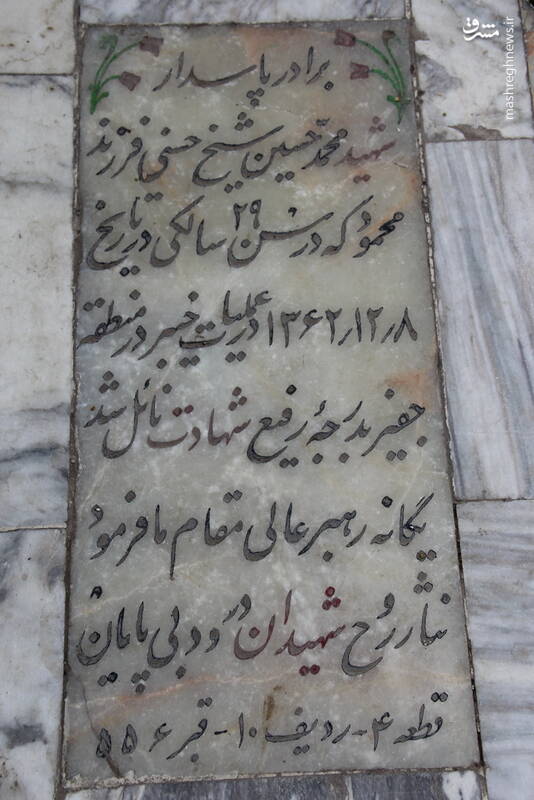 مشرق
mashreghnews.ir
برادر پاسدار
شهید محمدحسین شیخ حسنی فرزند
محمود که در سن ۲۹ سالگی در تاریخ
۱۳۶۲/۱۲/۸ در عملیات خیبر در منطقه
جفیر بدرجهٔ رفیع شهادت نائل شد
یگانه رهبر عالی مقام ما فرمود
نثار روح شهیدان درود بی پایان
قطعه ۴ - ردیف ۱۰ - قبر ۵۵۶